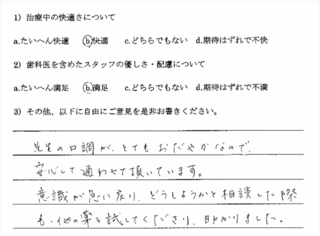 1) 治療中の快適さについて
a.たいへん快適 b.快適 c.どちらでもない d.期待はずれで不快
2) 歯科医を含めたスタッフの優しさ・配慮について
a.たいへん満足 b.満足 c.どちらでもない d.期待はずれで不満
3) その他、以下に自由にご意見を是非お書きください。
先生の口調が、とてもおだやかなので、
安心して通わせて頂いています。
意識が急に戻り、どうしようかと相談した際
も、他の薬を試してくださり、助かりました。